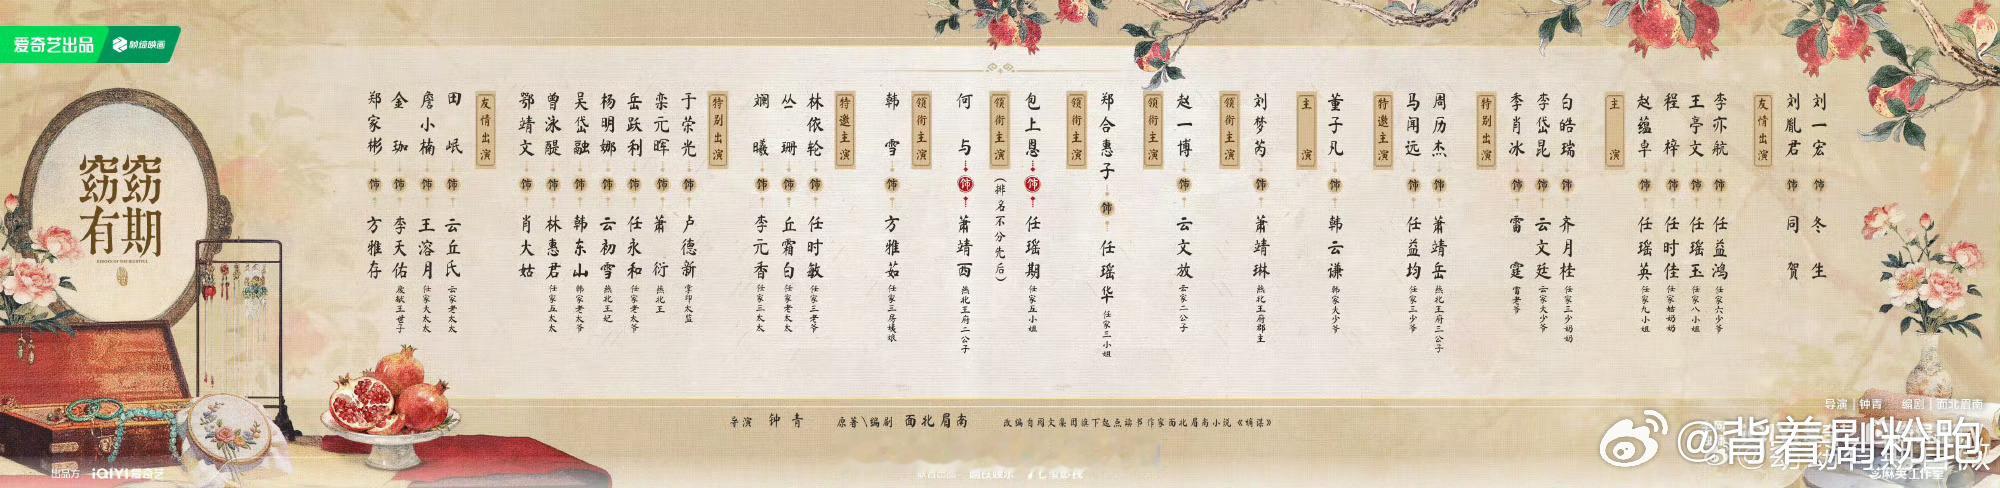 爱奇艺出品
帧绘映画
窈窕
有期
友情出演
郑家彬 饰 方雅存
金珈 饰 李天佑 废献王世子
詹小楠 饰 王溶月 任家大太太
田岷 饰 云丘氏 云家老太太
特别出演
鄂靖文 饰 肖大姑
曾泳醍 饰 林惠君 任家五太太
吴岱融 饰 韩东山 韩家老太爷
杨明娜 饰 云初雪 燕北王妃
岳跃利 饰 任永和 任家老太爷
栾元晖 饰 萧衍 燕北王
于荣光 饰 卢德新 掌印太监
特邀主演
斓曦 饰 李元香 任家三太太
丛珊 饰 丘霜白 任家老太太
林依轮 饰 任时敏 任家三老爷
领衔主演
韩雪 饰 方雅茹 任家三房姨娘
领衔主演
何与 饰 萧靖西 燕北王府二公子
(排名不分先后)
包上恩 饰 任瑶期 任家五小姐
领衔主演
郑合惠子 饰 任瑶华 任家三小姐
领衔主演
赵一博 饰 云文放 云家二公子
领衔主演
刘梦芮 饰 萧靖琳 燕北王府郡主
主演
董子凡 饰 韩云谦 韩家大少爷
特邀主演
马闻远 饰 任益均 任家三少爷
周历杰 饰 萧靖岳 燕北王府三公子
特别出演
季肖冰 饰 雷霆 雷老爷
李岱昆 饰 云文廷 云家大少爷
白皓瑞 饰 齐月桂 任家三少奶奶
主演
赵蕴卓 饰 任瑶英 任家九小姐
程梓 饰 任时佳 任家姑奶奶
王亭文 饰 任瑶玉 任家八小姐
李亦航 饰 任益鸿 任家六少爷
友情出演
刘胤君 饰 同贺
刘一宏 饰 冬生
导演 钟青 原著\编剧 面北眉南 改编自阅文集团旗下起点读书作家面北眉南小说《嫡谋》
导演|钟青 编剧|面北眉南
出品方 iQIYI爱奇艺
@背着剧粉跑